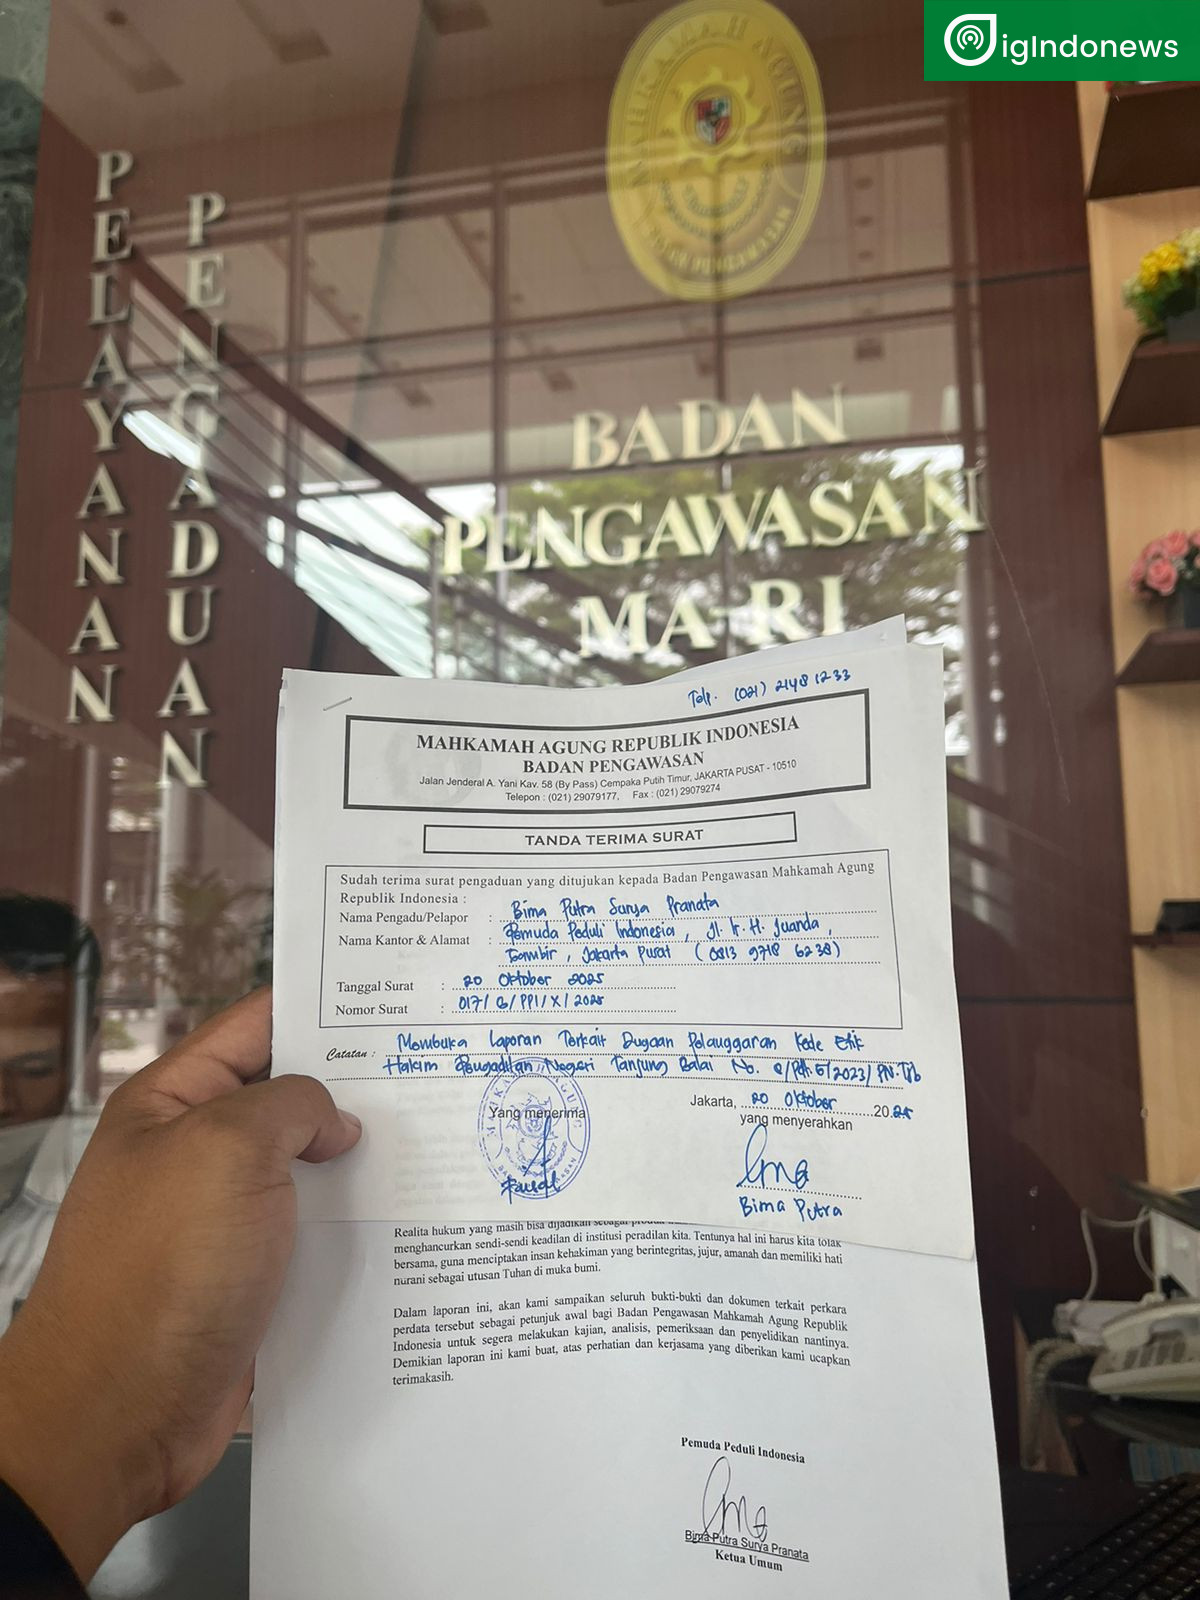 igIndonews
MAHKAMAH AGUNG
BADAN PENGAWASAN
PELAYANAN
PENGADUAN
BADAN
PENGAWASAN
MA-RI
Telp. (021) 2148 1233
MAHKAMAH AGUNG REPUBLIK INDONESIA
BADAN PENGAWASAN
Jalan Jenderal A. Yani Kav. 58 (By Pass) Cempaka Putih Timur, JAKARTA PUSAT - 10510
Telepon : (021) 29079177, Fax : (021) 29079274
TANDA TERIMA SURAT
Sudah terima surat pengaduan yang ditujukan kepada Badan Pengawasan Mahkamah Agung
Republik Indonesia :
Nama Pengadu/Pelapor : Bima Putra Surya Pranata
Nama Kantor & Alamat : Pemuda Peduli Indonesia, Jl. Ir. H. Juanda,
Gambir, Jakarta Pusat (0813 9718 6238)
Tanggal Surat : 20 Oktober 2025
Nomor Surat : 017/ B/ PPI/ X/ 2025
Catatan : Membuka Laporan Terkait Dugaan Pelanggaran Kode Etik
Hakim Pengadilan Negeri Tanjung Balai No. 8/Pdt.G/2023/PN.Tjb
Jakarta, 20 Oktober 2025
Yang menerima
yang menyerahkan
Faisal
Bima Putra
Realita hukum yang masih bisa dijadikan sebagai produk
menghancurkan sendi-sendi keadilan di institusi peradilan kita. Tentunya hal ini harus kita tolak
bersama, guna menciptakan insan kehakiman yang berintegritas, jujur, amanah dan memiliki hati
nurani sebagai utusan Tuhan di muka bumi.
Dalam laporan ini, akan kami sampaikan seluruh bukti-bukti dan dokumen terkait perkara
perdata tersebut sebagai petunjuk awal bagi Badan Pengawasan Mahkamah Agung Republik
Indonesia untuk segera melakukan kajian, analisis, pemeriksaan dan penyelidikan nantinya.
Demikian laporan ini kami buat, atas perhatian dan kerjasama yang diberikan kami ucapkan
terimakasih.
Pemuda Peduli Indonesia
Bima Putra Surya Pranata
Ketua Umum